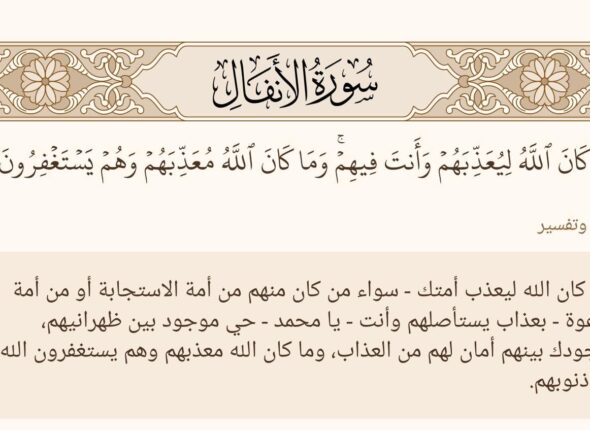 سُورَةُ الأَنفَالِ
كَانَ ٱللَّهُ لِيُعَذِّبَهُمۡ وَأَنتَ فِيهِمۡۚ وَمَا كَانَ ٱللَّهُ مُعَذِّبَهُمۡ وَهُمۡ يَسۡتَغۡفِرُونَ
وتفسير
كان الله ليعذب أمتك - سواء من كان منهم من أمة الاستجابة أو من أمة
عوة - بعذاب يستأصلهم وأنت - يا محمد - حي موجود بين ظهرانيهم،
جودك بينهم أمان لهم من العذاب، وما كان الله معذبهم وهم يستغفرون الله
ذنوبهم.